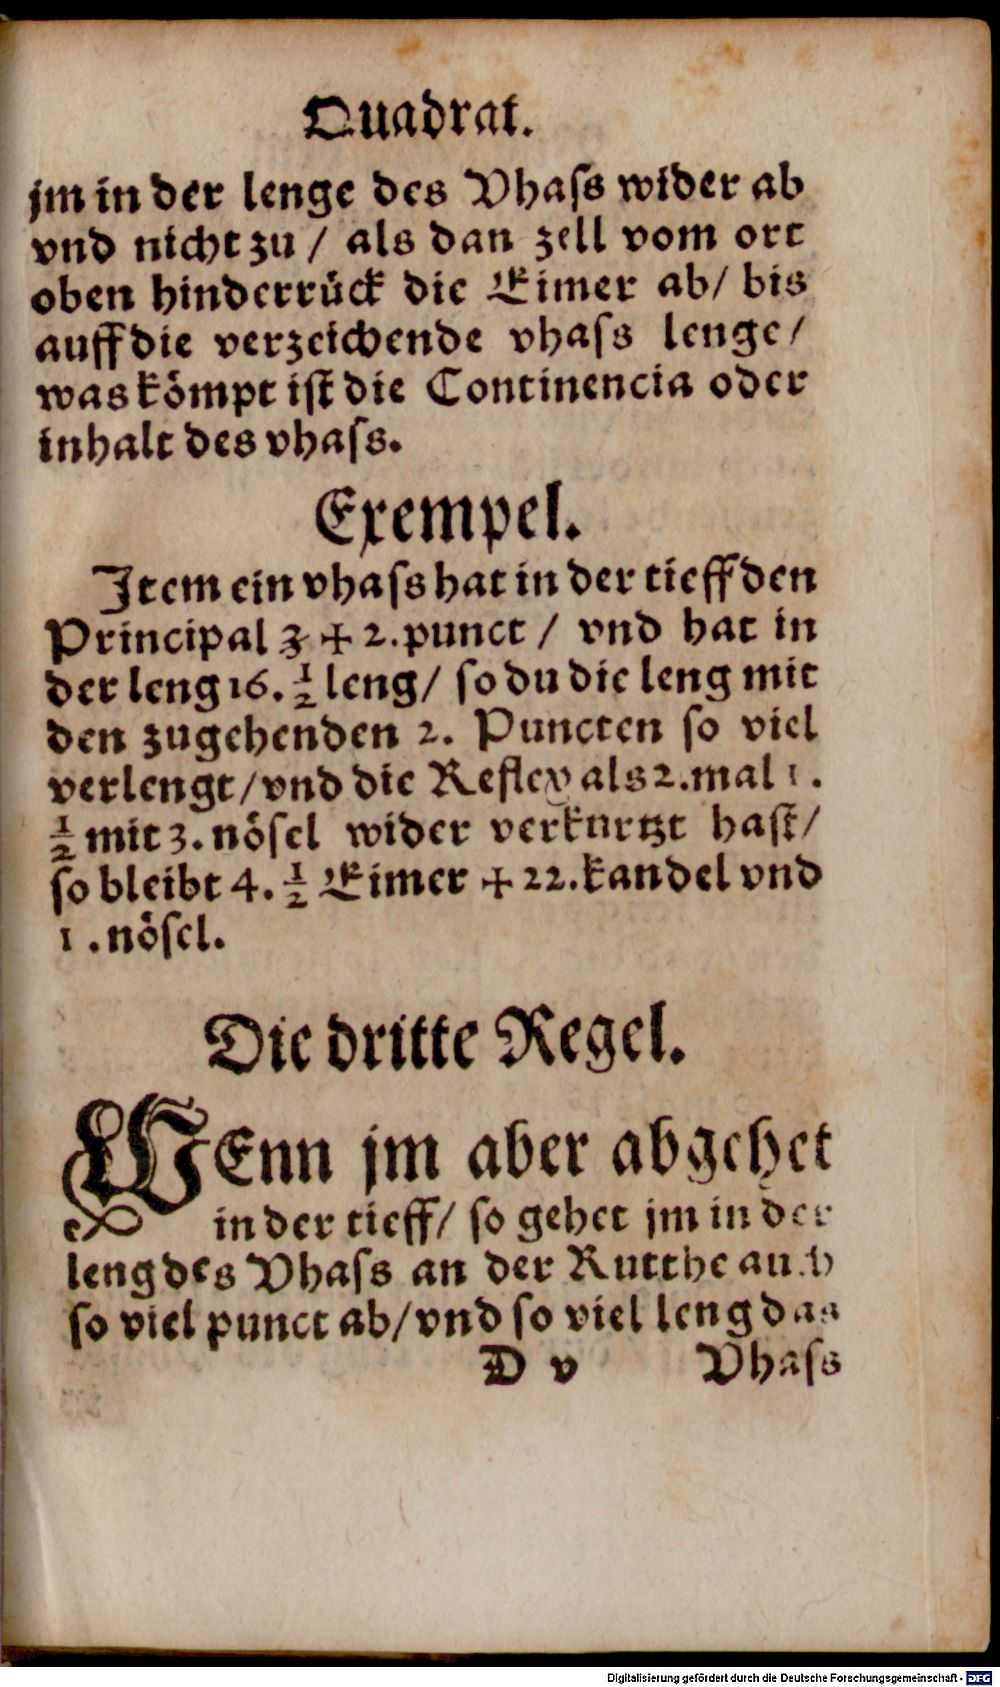 Quadrat.
jm in der lenge des Vhass wider ab
vnd nicht zu / als dan zell vom ort
oben hinderrück die Eimer ab/ bis
auff die verzeichende vhass lenge/
was kömpt ist die Continencia oder
inhalt des vhass.
Exempel.
Item ein vhass hat in der tieff den
Principal 3 + 2. punct / vnd hat in
der leng 16. ½ leng/ so du die leng mit
den zugehenden 2. Puncten so viel
verlengt/vnd die Reflex als 2.mal 1.
½ mit 3. nösel wider verkurtzt hast/
so bleibt 4. ½ Eimer + 22. kandel vnd
1. nösel.
Die dritte Regel.
WEnn jm aber abgehet
in der tieff/ so gehet jm in der
leng des Vhass an der Rutthe auch
so viel punct ab/vnd so viel leng das
D v Vhass
Digitalisierung gefördert durch die Deutsche Forschungsgemeinschaft - DFG